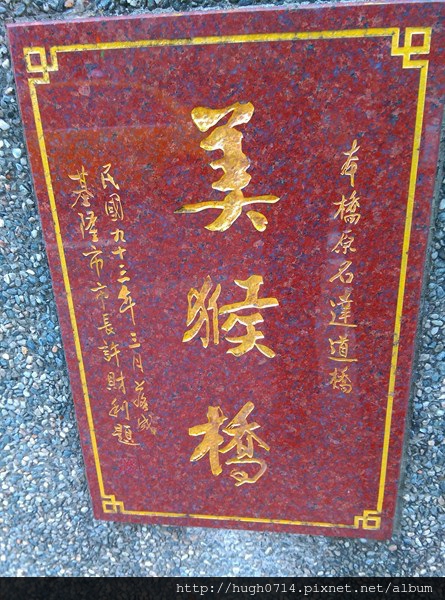 本橋原名蓮道橋
美猴橋
民國九十三年三月落成
基隆市市長許財利題
http://hugh0714.pixnet.net/album